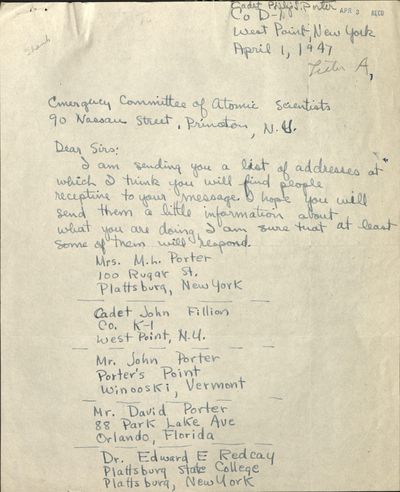 Cadet Philip J. Porter
APR 3 RECD
Co D-1
West Point, New York
April 1, 1947
Emergency Committee of Atomic Scientists
90 Nassau Street, Princeton, N.J.
Dear Sirs:
I am sending you a list of addresses at
which I think you will find people
receptive to your message. I hope you will
send them a little information about
what you are doing. I am sure that at least
some of them will respond.
Mrs. M.L. Porter
100 Rugar St.
Plattsburg, New York
Cadet John Fillion
Co. K-1
West Point, N.Y.
Mr. John Porter
Porter's Point
Winooski, Vermont
Mr. David Porter
88 Park Lake Ave
Orlando, Florida
Dr. Edward E Redcay
Plattsburg State College
Plattsburg, New York